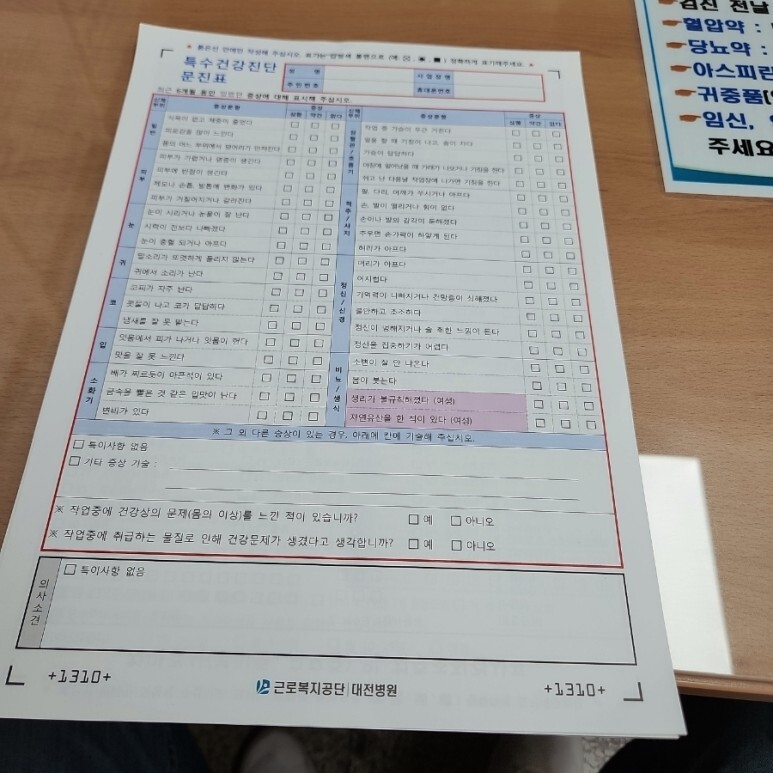 특수건강진단
문진표
성 명
사업장명
주민번호
휴대폰번호
최근 6개월 동안 있었던 증상에 대해 표시해 주십시오.
증상문항
증상
식욕이 없고 체중이 줄었다
피로감을 많이 느낀다
몸의 어느 부위에서 덩어리가 만져진다
피부
피부가 가렵거나 염증이 생긴다
피부에 반점이 생긴다
피부가 거칠어지거나 갈라진다
눈
눈이 시리거나 눈물이 잘 난다
시력이 전보다 나빠졌다
눈이 충혈 되거나 아프다
귀
말소리가 또렷하게 들리지 않는다
귀에서 소리가 난다
코
코피가 자주 난다
콧물이 나고 코가 답답하다
냄새를 잘 못 맡는다
입
잇몸에서 피가 나거나 잇몸이 헌다
맛을 잘 못 느낀다
소화기
배가 찌르듯이 아픈적이 있다
금속을 빨은 것 같은 입맛이 난다
변비가 있다
증상문항
증상
가슴이 답답하다
척추/사지
팔, 다리, 어깨가 쑤시거나 아프다
손, 발이 떨리거나 힘이 없다
손이나 발의 감각이 둔하졌다
추우면 손가락이 하얗게 된다
허리가 아프다
정신/신경
머리가 아프다
어지럽다
기억력이 나빠지거나 건망증이 심해졌다
불안하고 초조하다
정신이 멍해지거나 술 취한 느낌이 든다
정신을 집중하기가 어렵다
비뇨/생식
소변이 잘 안 나온다
몸이 붓는다
생리가 불규칙하였다 (여성)
자연유산을 한 적이 있다 (여성)
※ 그 외 다른 증상이 있는 경우, 아래에 칸에 기술해 주십시오.
□ 특이사항 없음
□ 기타 증상 기술 :
※ 작업중에 건강상의 문제(몸의 이상)를 느낀 적이 있습니까? □ 예 □ 아니오
※ 작업중에 취급하는 물질로 인해 건강문제가 생겼다고 생각합니까? □ 예 □ 아니오
의사소견
□ 특이사항 없음
+1310+
근로복지공단 | 대전병원
+1310+
검진 전날
혈압약 :
당뇨약 :
아스피린
귀중품
임신,
주세요